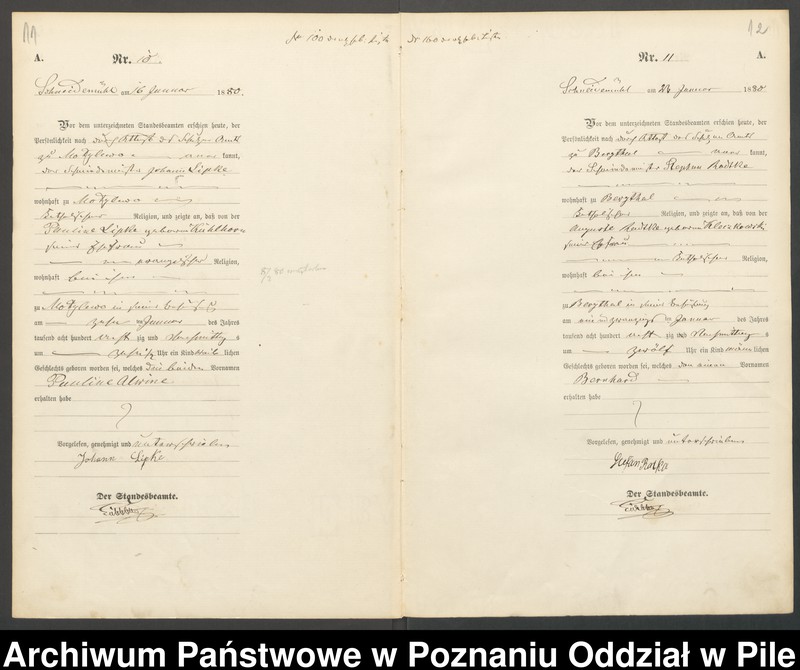 11
A. Nr. 10.
Schneidemühl am 16 Januar 1880.
Vor dem unterzeichneten Standesbeamten erschien heute, der
Persönlichkeit nach durch Attest des Schulzen Amts
zu Motylewo kannt,
der Johann Lipke
wohnhaft zu Motylewo
katholischer Religion, und zeigte an, daß von der
Pauline Lipke geborene
seine Ehefrau
evangelischer Religion,
wohnhaft bei ihm
zu Motylewo in seiner Behausung
am zehn ten Januar des Jahres
tausend acht hundert acht zig und Nachmittag s
um Uhr ein Kind weib lichen
Geschlechts geboren worden sei, welches die beiden Vornamen
Pauline Alwine
erhalten habe
Vorgelesen, genehmigt und unterschrieben
Johann Lipke
Der Standesbeamte.
12
Nr. 11 A.
Schneidemühl am Januar 1880
Vor dem unterzeichneten Standesbeamten erschien heute, der
Persönlichkeit nach durch Attest des Schulzen Amts
zu Bergthal kannt,
der Stephan Radtke
wohnhaft zu Bergthal
katholischer Religion, und zeigte an, daß von der
Auguste Radtke geborene
seine Ehefrau
katholischer Religion,
wohnhaft bei ihm
zu Bergthal in seiner Behausung
am ein und zwanzigsten Januar des Jahres
tausend acht hundert acht zig und Nachmittag s
um zwölf Uhr ein Kind männ lichen
Geschlechts geboren worden sei, welches den einen Vornamen
Bernhard
erhalten habe
Vorgelesen, genehmigt und unterschrieben
Der Standesbeamte.
Archiwum Państwowe w Poznaniu Oddział w Pile